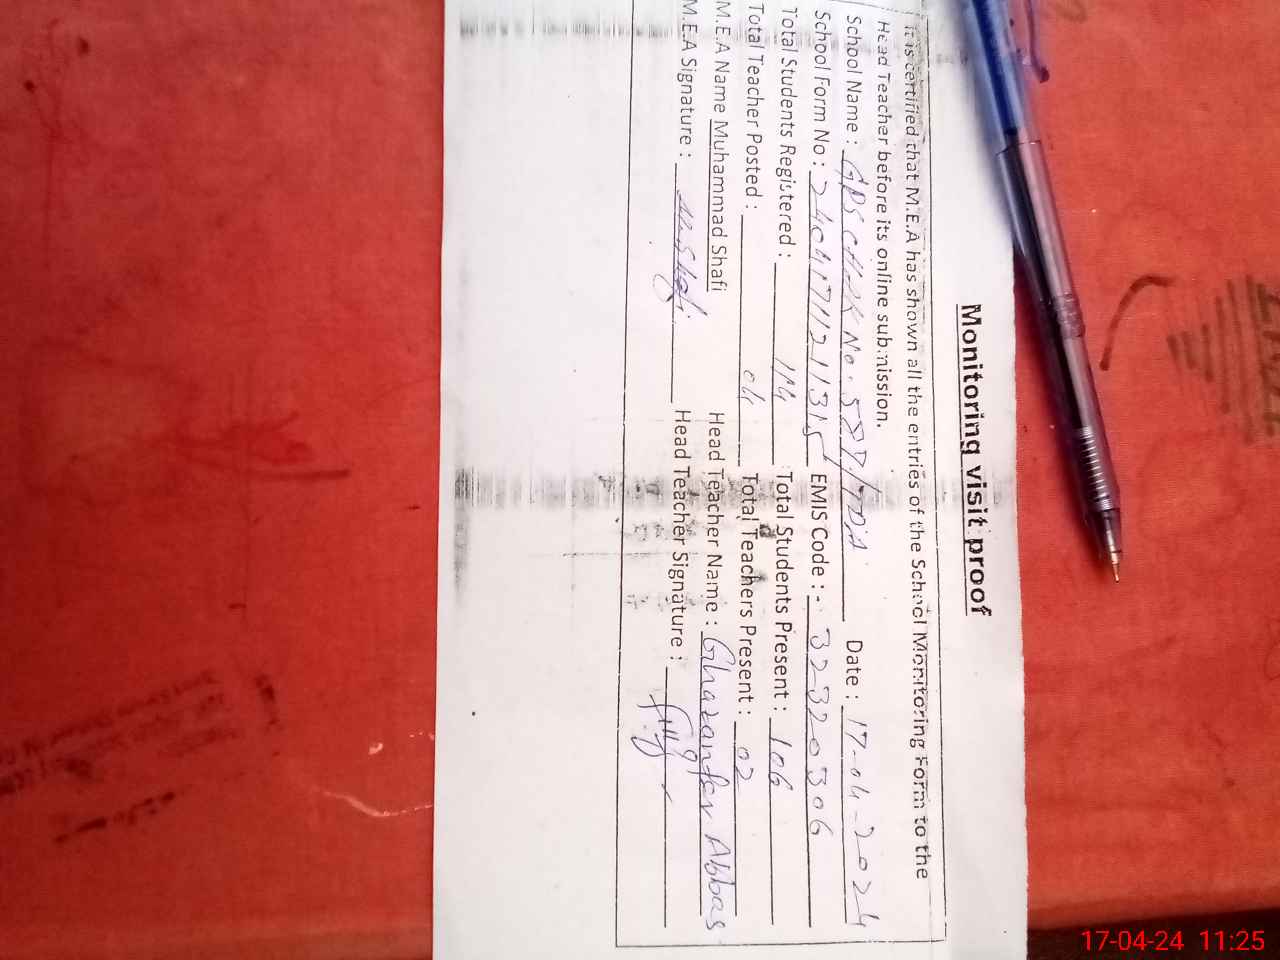 Monitoring visit proof
It is certified that M.E.A has shown all the entries of the School Monitoring Form to the
Head Teacher before its online submission.
School Name : GPS CHAK No. 587/TDA Date : 17-04-2024
School Form No : EMIS Code : - 32320306
Total Students Registered : 114 Total Students Present : 106
Total Teacher Posted : 04 Total Teachers Present : 02
M.E.A Name Muhammad Shafi Head Teacher Name : Ghazanfer Abbas
M.E.A Signature : M.Shafi Head Teacher Signature :
17-04-24 11:25